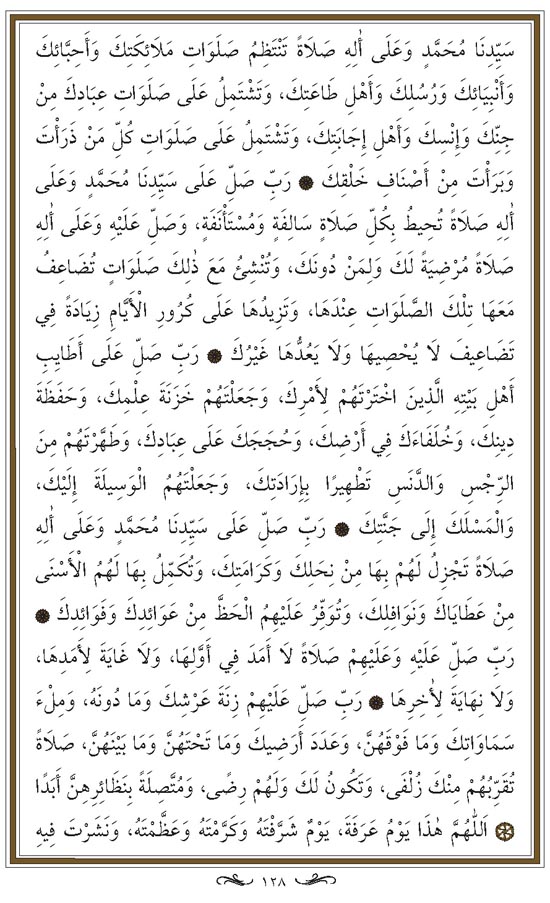 سَيِّدِنَا مُحَمَّدٍ وَعَلَى أٰلِهِ صَلَاةً تَنْتَظِمُ صَلَوَاتِ مَلَائِكَتِكَ وَأَحِبَّائِكَ
وَأَنْبِيَائِكَ وَرُسُلِكَ وَأَهْلِ طَاعَتِكَ، وَتَشْتَمِلُ عَلَى صَلَوَاتِ عِبَادِكَ مِنْ
جِنِّكَ وَإِنْسِكَ وَأَهْلِ إِجَابَتِكَ، وَتَشْتَمِلُ عَلَى صَلَوَاتِ كُلِّ مَنْ ذَرَأْتَ
وَبَرَأْتَ مِنْ أَصْنَافِ خَلْقِكَ ۞ رَبِّ صَلِّ عَلَى سَيِّدِنَا مُحَمَّدٍ وَعَلَى
أٰلِهِ صَلَاةً تُحِيطُ بِكُلِّ صَلَاةٍ سَالِفَةٍ وَمُسْتَأْنَفَةٍ، وَصَلِّ عَلَيْهِ وَعَلَى أٰلِهِ
صَلَاةً مُرْضِيَةً لَكَ وَلِمَنْ دُونَكَ، وَتُنْشِئُ مَعَ ذٰلِكَ صَلَوَاتٍ تُضَاعِفُ
مَعَهَا تِلْكَ الصَّلَوَاتِ عِنْدَهَا، وَتَزِيدُهَا عَلَى كُرُورِ الْأَيَّامِ زِيَادَةً فِي
تَضَاعِيفَ لَا يُحْصِيهَا وَلَا يَعُدُّهَا غَيْرُكَ ۞ رَبِّ صَلِّ عَلَى أَطَايِبِ
أَهْلِ بَيْتِهِ الَّذِينَ اخْتَرْتَهُمْ لِأَمْرِكَ، وَجَعَلْتَهُمْ خَزَنَةَ عِلْمِكَ، وَحَفَظَةَ
دِينِكَ، وَخُلَفَاءَكَ فِي أَرْضِكَ، وَحُجَجَكَ عَلَى عِبَادِكَ، وَطَهَّرْتَهُمْ مِنَ
الرِّجْسِ وَالدَّنَسِ تَطْهِيرًا بِإِرَادَتِكَ، وَجَعَلْتَهُمُ الْوَسِيلَةَ إِلَيْكَ،
وَالْمَسْلَكَ إِلَى جَنَّتِكَ ۞ رَبِّ صَلِّ عَلَى سَيِّدِنَا مُحَمَّدٍ وَعَلَى أٰلِهِ
صَلَاةً تَجْزِلُ لَهُمْ بِهَا مِنْ نِحَلِكَ وَكَرَامَتِكَ، وَتُكَمِّلُ بِهَا لَهُمُ الْأَسْنَى
مِنْ عَطَايَاكَ وَنَوَافِلِكَ، وَتُوَفِّرُ عَلَيْهِمُ الْحَظَّ مِنْ عَوَائِدِكَ وَفَوَائِدِكَ ۞
رَبِّ صَلِّ عَلَيْهِ وَعَلَيْهِمْ صَلَاةً لَا أَمَدَ فِي أَوَّلِهَا، وَلَا غَايَةَ لِأَمَدِهَا،
وَلَا نِهَايَةَ لِأٰخِرِهَا ۞ رَبِّ صَلِّ عَلَيْهِمْ زِنَةَ عَرْشِكَ وَمَا دُونَهُ، وَمِلْءَ
سَمَاوَاتِكَ وَمَا فَوْقَهُنَّ، وَعَدَدَ أَرَضِيكَ وَمَا تَحْتَهُنَّ وَمَا بَيْنَهُنَّ، صَلَاةً
تُقَرِّبُهُمْ مِنْكَ زُلْفَى، وَتَكُونُ لَكَ وَلَهُمْ رِضًى، وَمُتَّصِلَةً بِنَظَائِرِهِنَّ أَبَدًا
۞ اَللّٰهُمَّ هٰذَا يَوْمُ عَرَفَةَ، يَوْمٌ شَرَّفْتَهُ وَكَرَّمْتَهُ وَعَظَّمْتَهُ، وَنَشَرْتَ فِيهِ
١٢٨